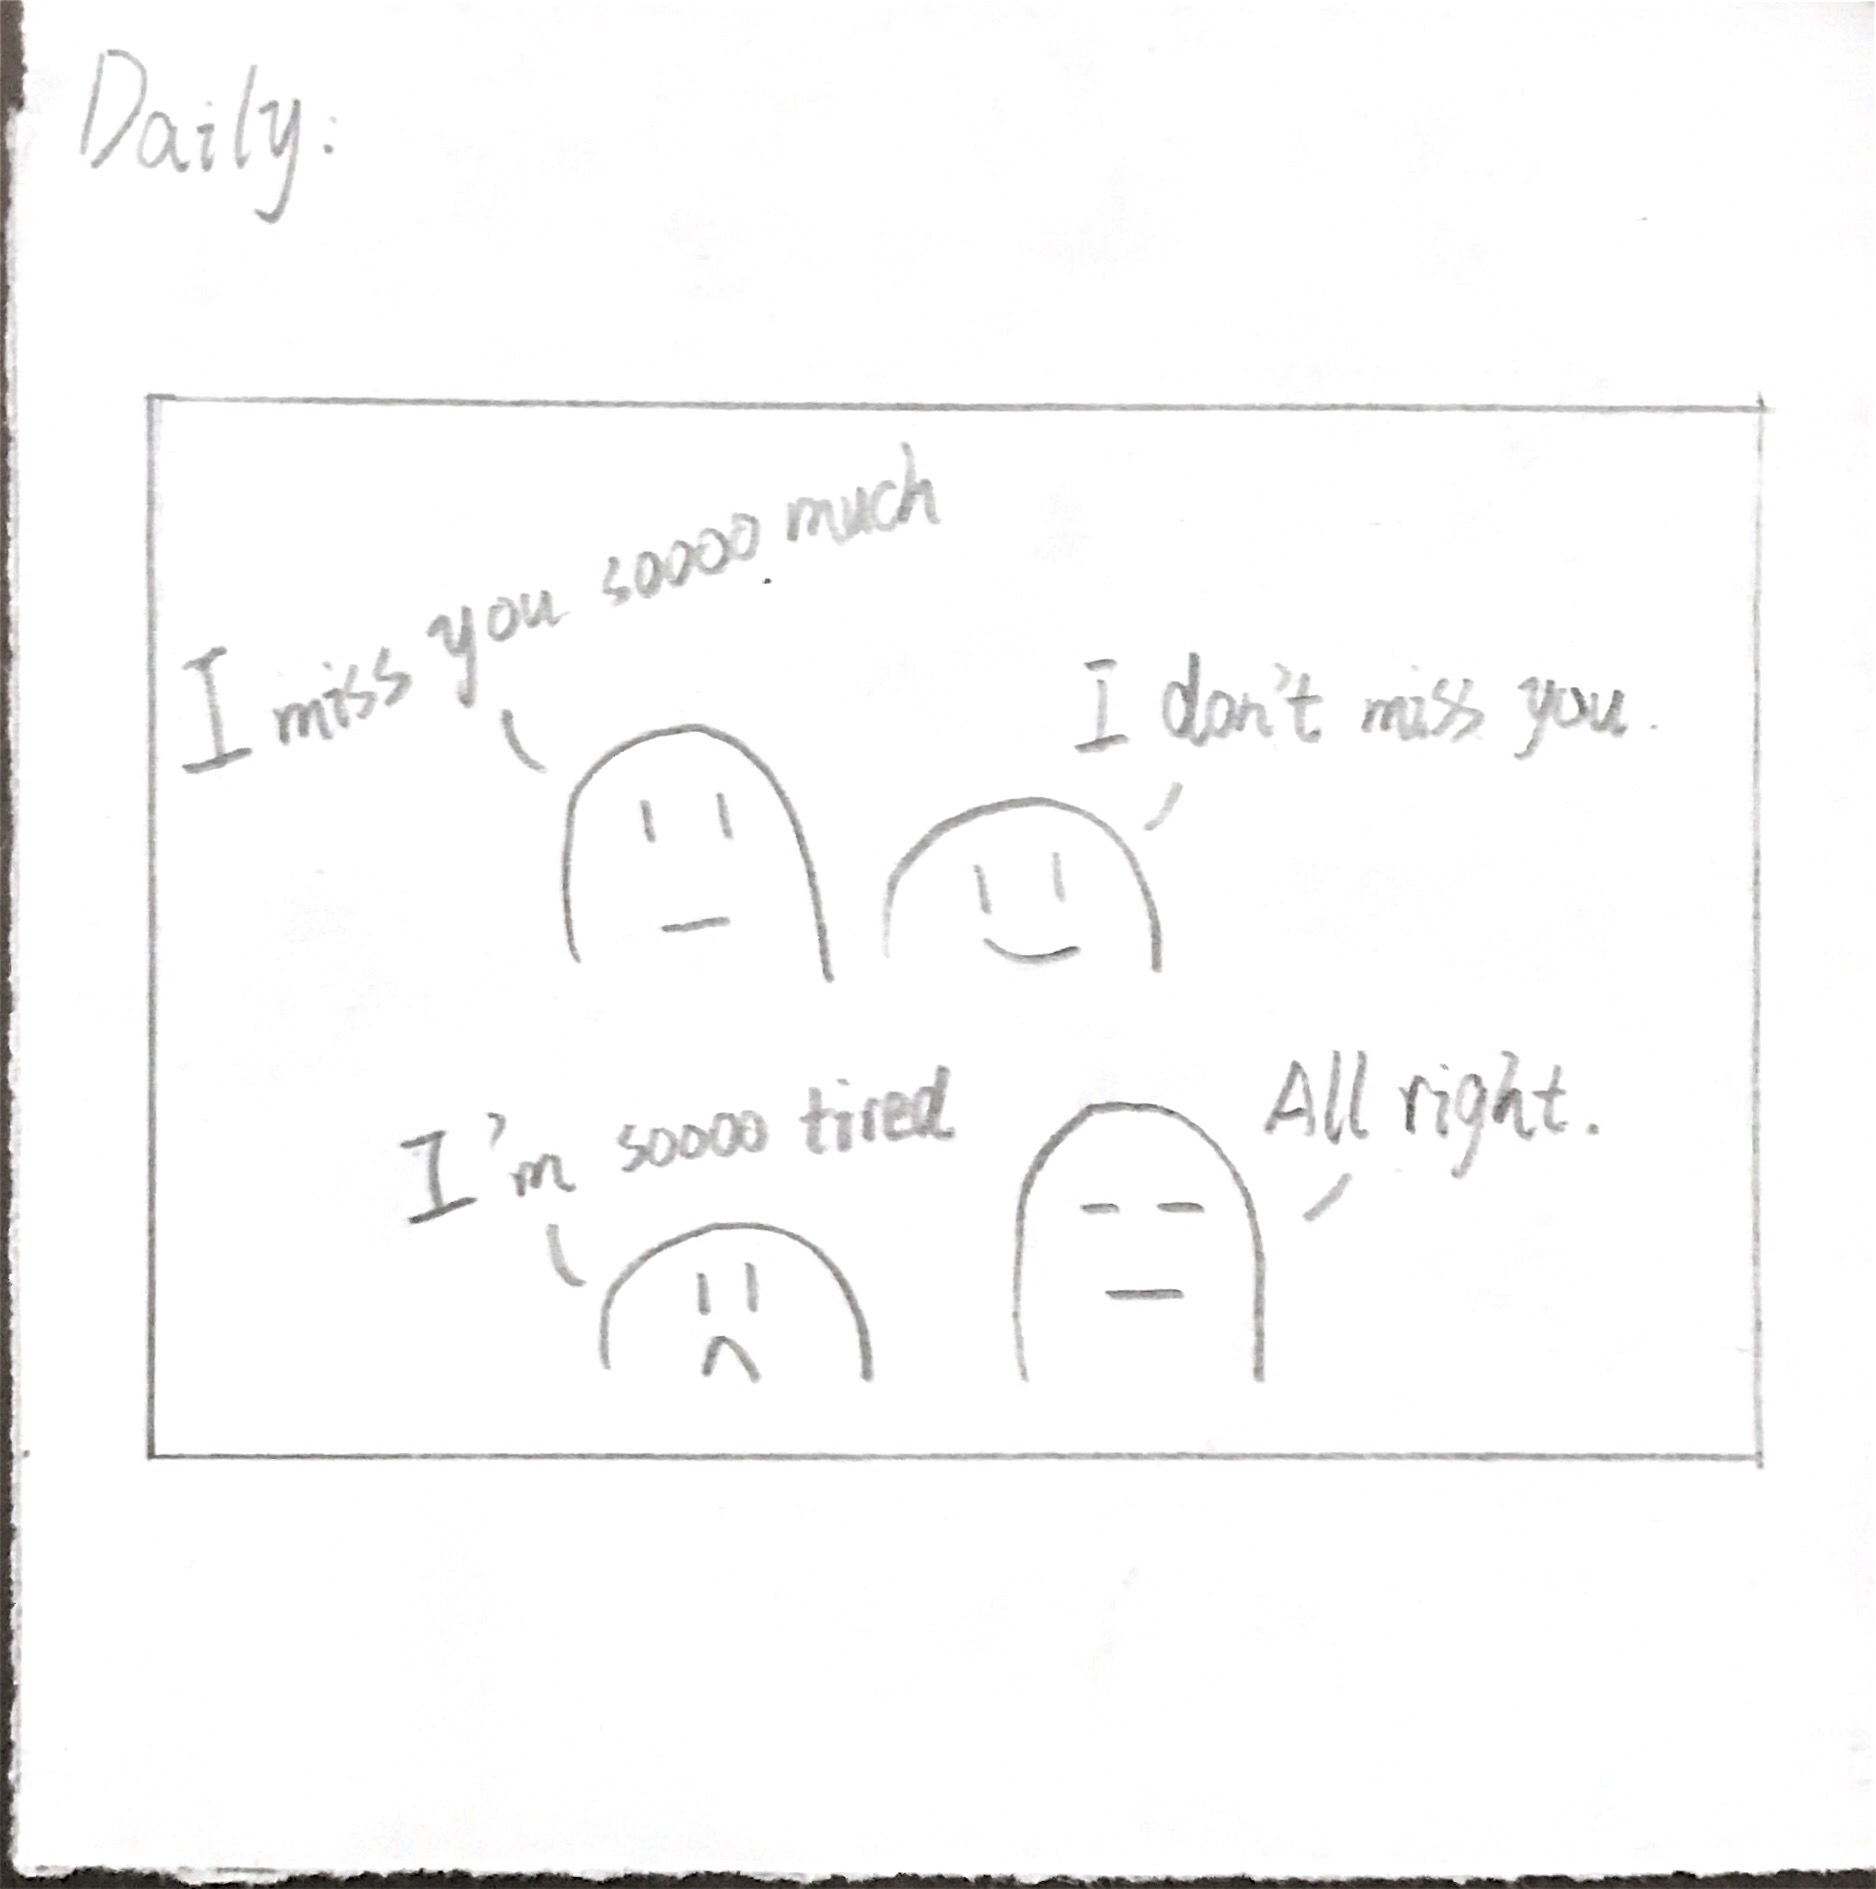 Daily:
I miss you soooo much
I don't miss you.
I'm soooo tired
All right.